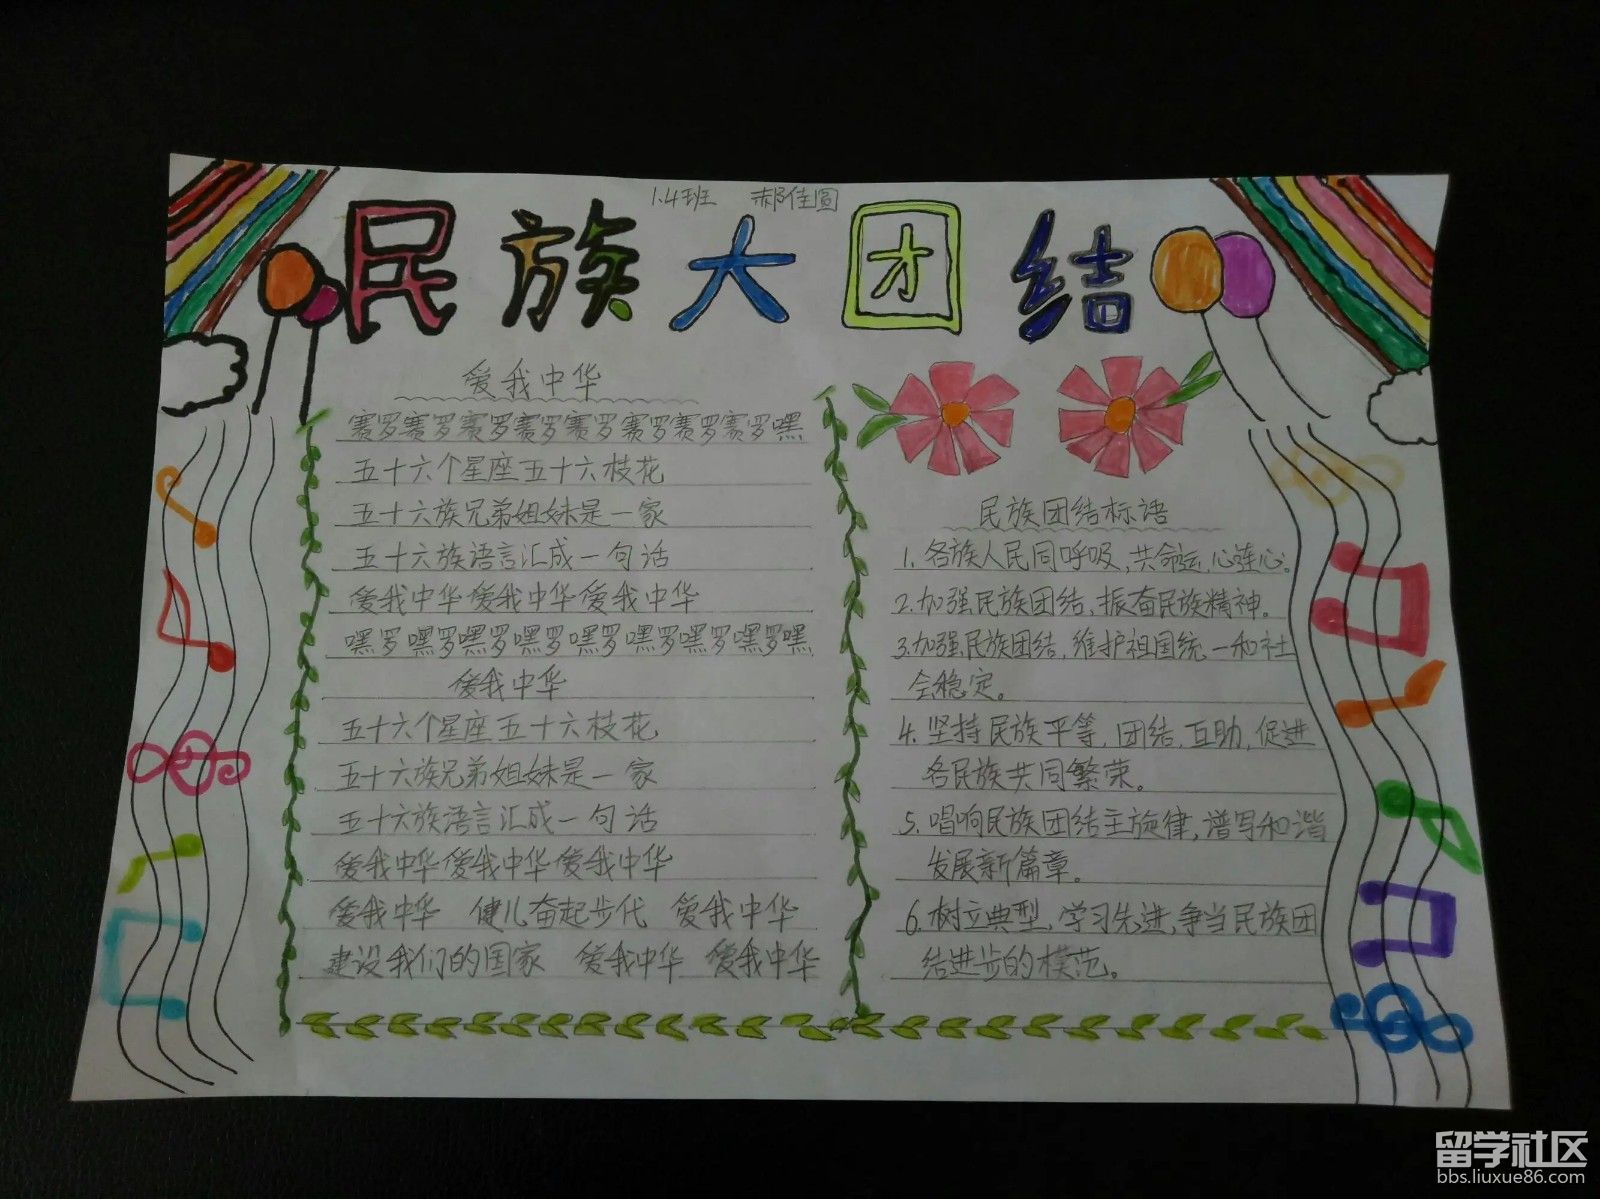 1.4班 郝佳圆
民族大团结
爱我中华
赛罗赛罗赛罗赛罗赛罗赛罗赛罗赛罗嘿
五十六个星座五十六枝花
五十六族兄弟姐妹是一家
五十六族语言汇成一句话
爱我中华爱我中华爱我中华
嘿罗嘿罗嘿罗嘿罗嘿罗嘿罗嘿罗嘿罗嘿
爱我中华
五十六个星座五十六枝花
五十六族兄弟姐妹是一家
五十六族语言汇成一句话
爱我中华爱我中华爱我中华
爱我中华 健儿奋起步代 爱我中华
建设我们的国家 爱我中华 爱我中华
民族团结标语
1. 各族人民同呼吸,共命运,心连心。
2.加强民族团结,振奋民族精神。
3.加强民族团结,维护祖国统一和社
会稳定。
4.坚持民族平等,团结,互助,促进
各民族共同繁荣。
5.唱响民族团结主旋律,谱写和谐
发展新篇章。
6.树立典型,学习先进,争当民族团
结进步的模范。
留学社区
bbs.liuxue86.com